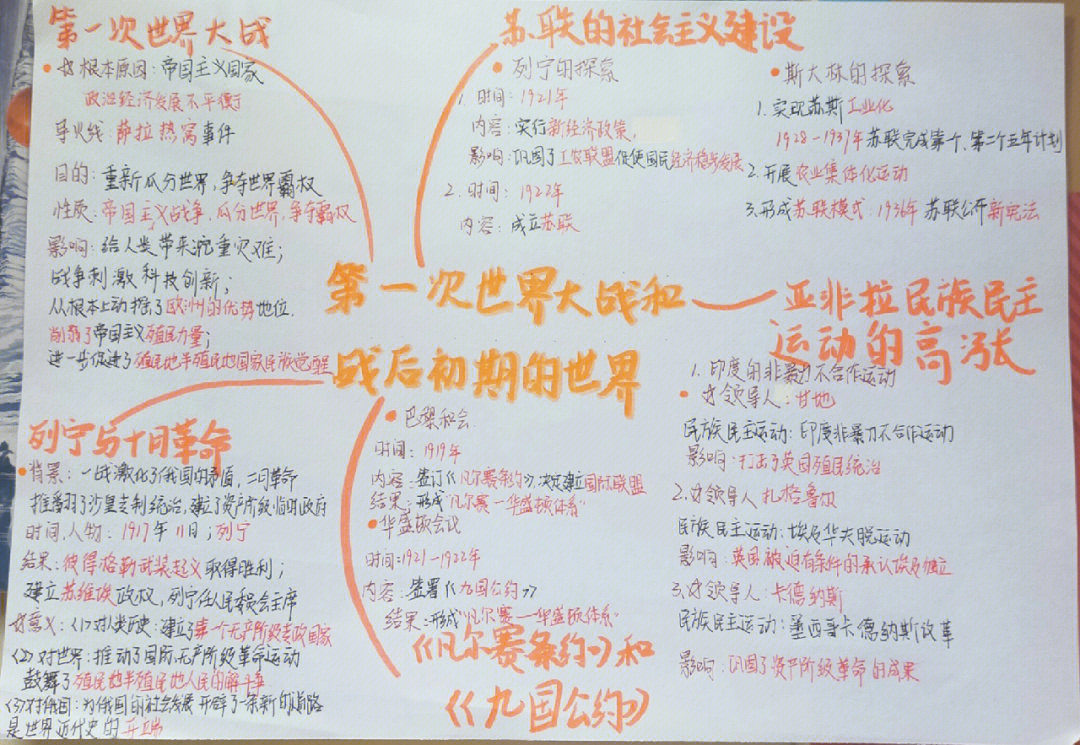 第一次世界大战
☆根本原因：帝国主义国家
政治经济发展不平衡
导火线：萨拉热窝事件
目的：重新瓜分世界，争夺世界霸权
性质：帝国主义战争，瓜分世界，争夺霸权
影响：给人类带来沉重灾难；
战争刺激科技创新；
从根本上动摇了欧洲的优势地位.
削弱了帝国主义殖民力量；
进一步促进了殖民地半殖民地国家民族觉醒
苏联的社会主义建设
列宁的探索
1. 时间：1921年
内容：实行新经济政策，
影响：巩固了工农联盟促使国民经济稳步发展
2. 时间：1922年
内容：成立苏联
斯大林的探索
1. 实现苏斯工业化
1928-1937年苏联完成第一个、第二个五年计划
2. 开展农业集体化运动
3. 形成苏联模式：1936年 苏联公开新宪法
第一次世界大战和
战后初期的世界
亚非拉民族民主
运动的高涨
1. 印度的非暴力不合作运动
☆领导人：甘地
民族民主运动：印度非暴力不合作运动
影响：打击了英国殖民统治
2. ☆领导人 扎格鲁尔
民族民主运动：埃及华夫脱运动
影响：英国被迫有条件的承认埃及独立
3. ☆领导人：卡德纳斯
民族民主运动：墨西哥卡德纳斯改革
影响：巩固了资产阶级革命的成果
列宁与十月革命
背景：一战激化了俄国内矛盾，二月革命
推翻了沙皇专制统治，建立了资产阶级临时政府
时间、人物：1917年11月；列宁
结果：彼得格勒武装起义取得胜利；
建立苏维埃政权，列宁任人民委员会主席
☆意义：(1)对人类历史：建立了第一个无产阶级专政国家
(2)对世界：推动了国际无产阶级革命运动
鼓舞了殖民地半殖民地人民的解放斗争
(3)对俄国：为俄国的社会发展开辟了一条新的道路
是世界近代史的开端
巴黎和会
时间：1919年
内容：签订《凡尔赛条约》，决定建立国际联盟
结果：形成"凡尔赛—华盛顿体系"
华盛顿会议
时间：1921-1922年
内容：签署《九国公约》
结果：形成"凡尔赛—华盛顿体系"
《凡尔赛条约》和
《九国公约》